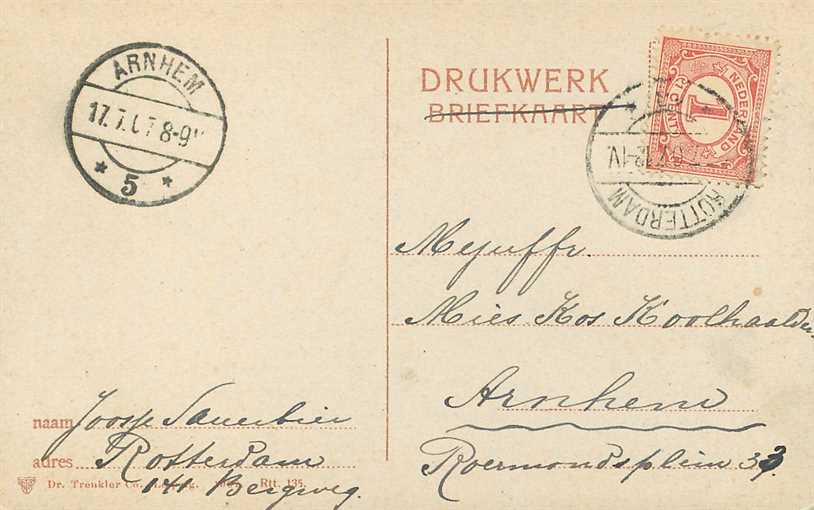 ARNHEM
17.7.07 8-9V
5
DRUKWERK
BRIEFKAART
NEDERLAND
1
CENT
ROTTERDAM
12-1V.
Mejuffr.
Mies Kos Koolhaalder
Arnhem
Roermondsplein 33.
naam Joosje Sauerbier
adres Rotterdam
141 Bergweg.
Dr. Trenkler Co. Leipzig. Rtt. 135.